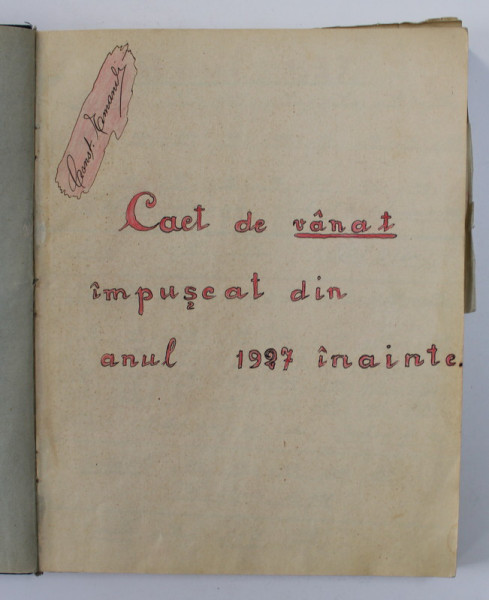 Const. Emandi
Caet de vânat
împușcat din
anul 1927 înainte.